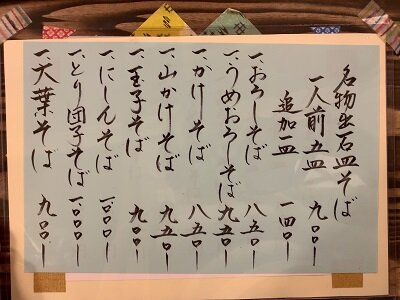 名物出石皿そば
一人前五皿 九〇〇ー
追加一皿 一四〇ー
一、おろしそば 八五〇ー
一、うめおろしそば 九五〇ー
一、かけそば 八五〇ー
一、山かけそば 九五〇ー
一、玉子そば 九〇〇ー
一、にしんそば 一〇〇〇ー
一、とり団子そば 一〇〇〇ー
一、大葉そば 九〇〇ー